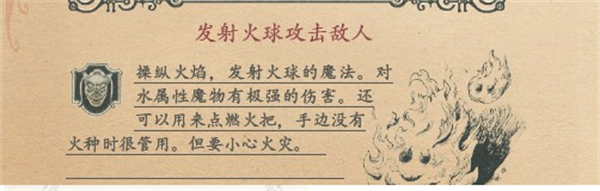 发射火球攻击敌人
操纵火焰，发射火球的魔法。对
水属性魔物有极强的伤害。还
可以用来点燃火把，手边没有
火种时很管用。但要小心火灾。